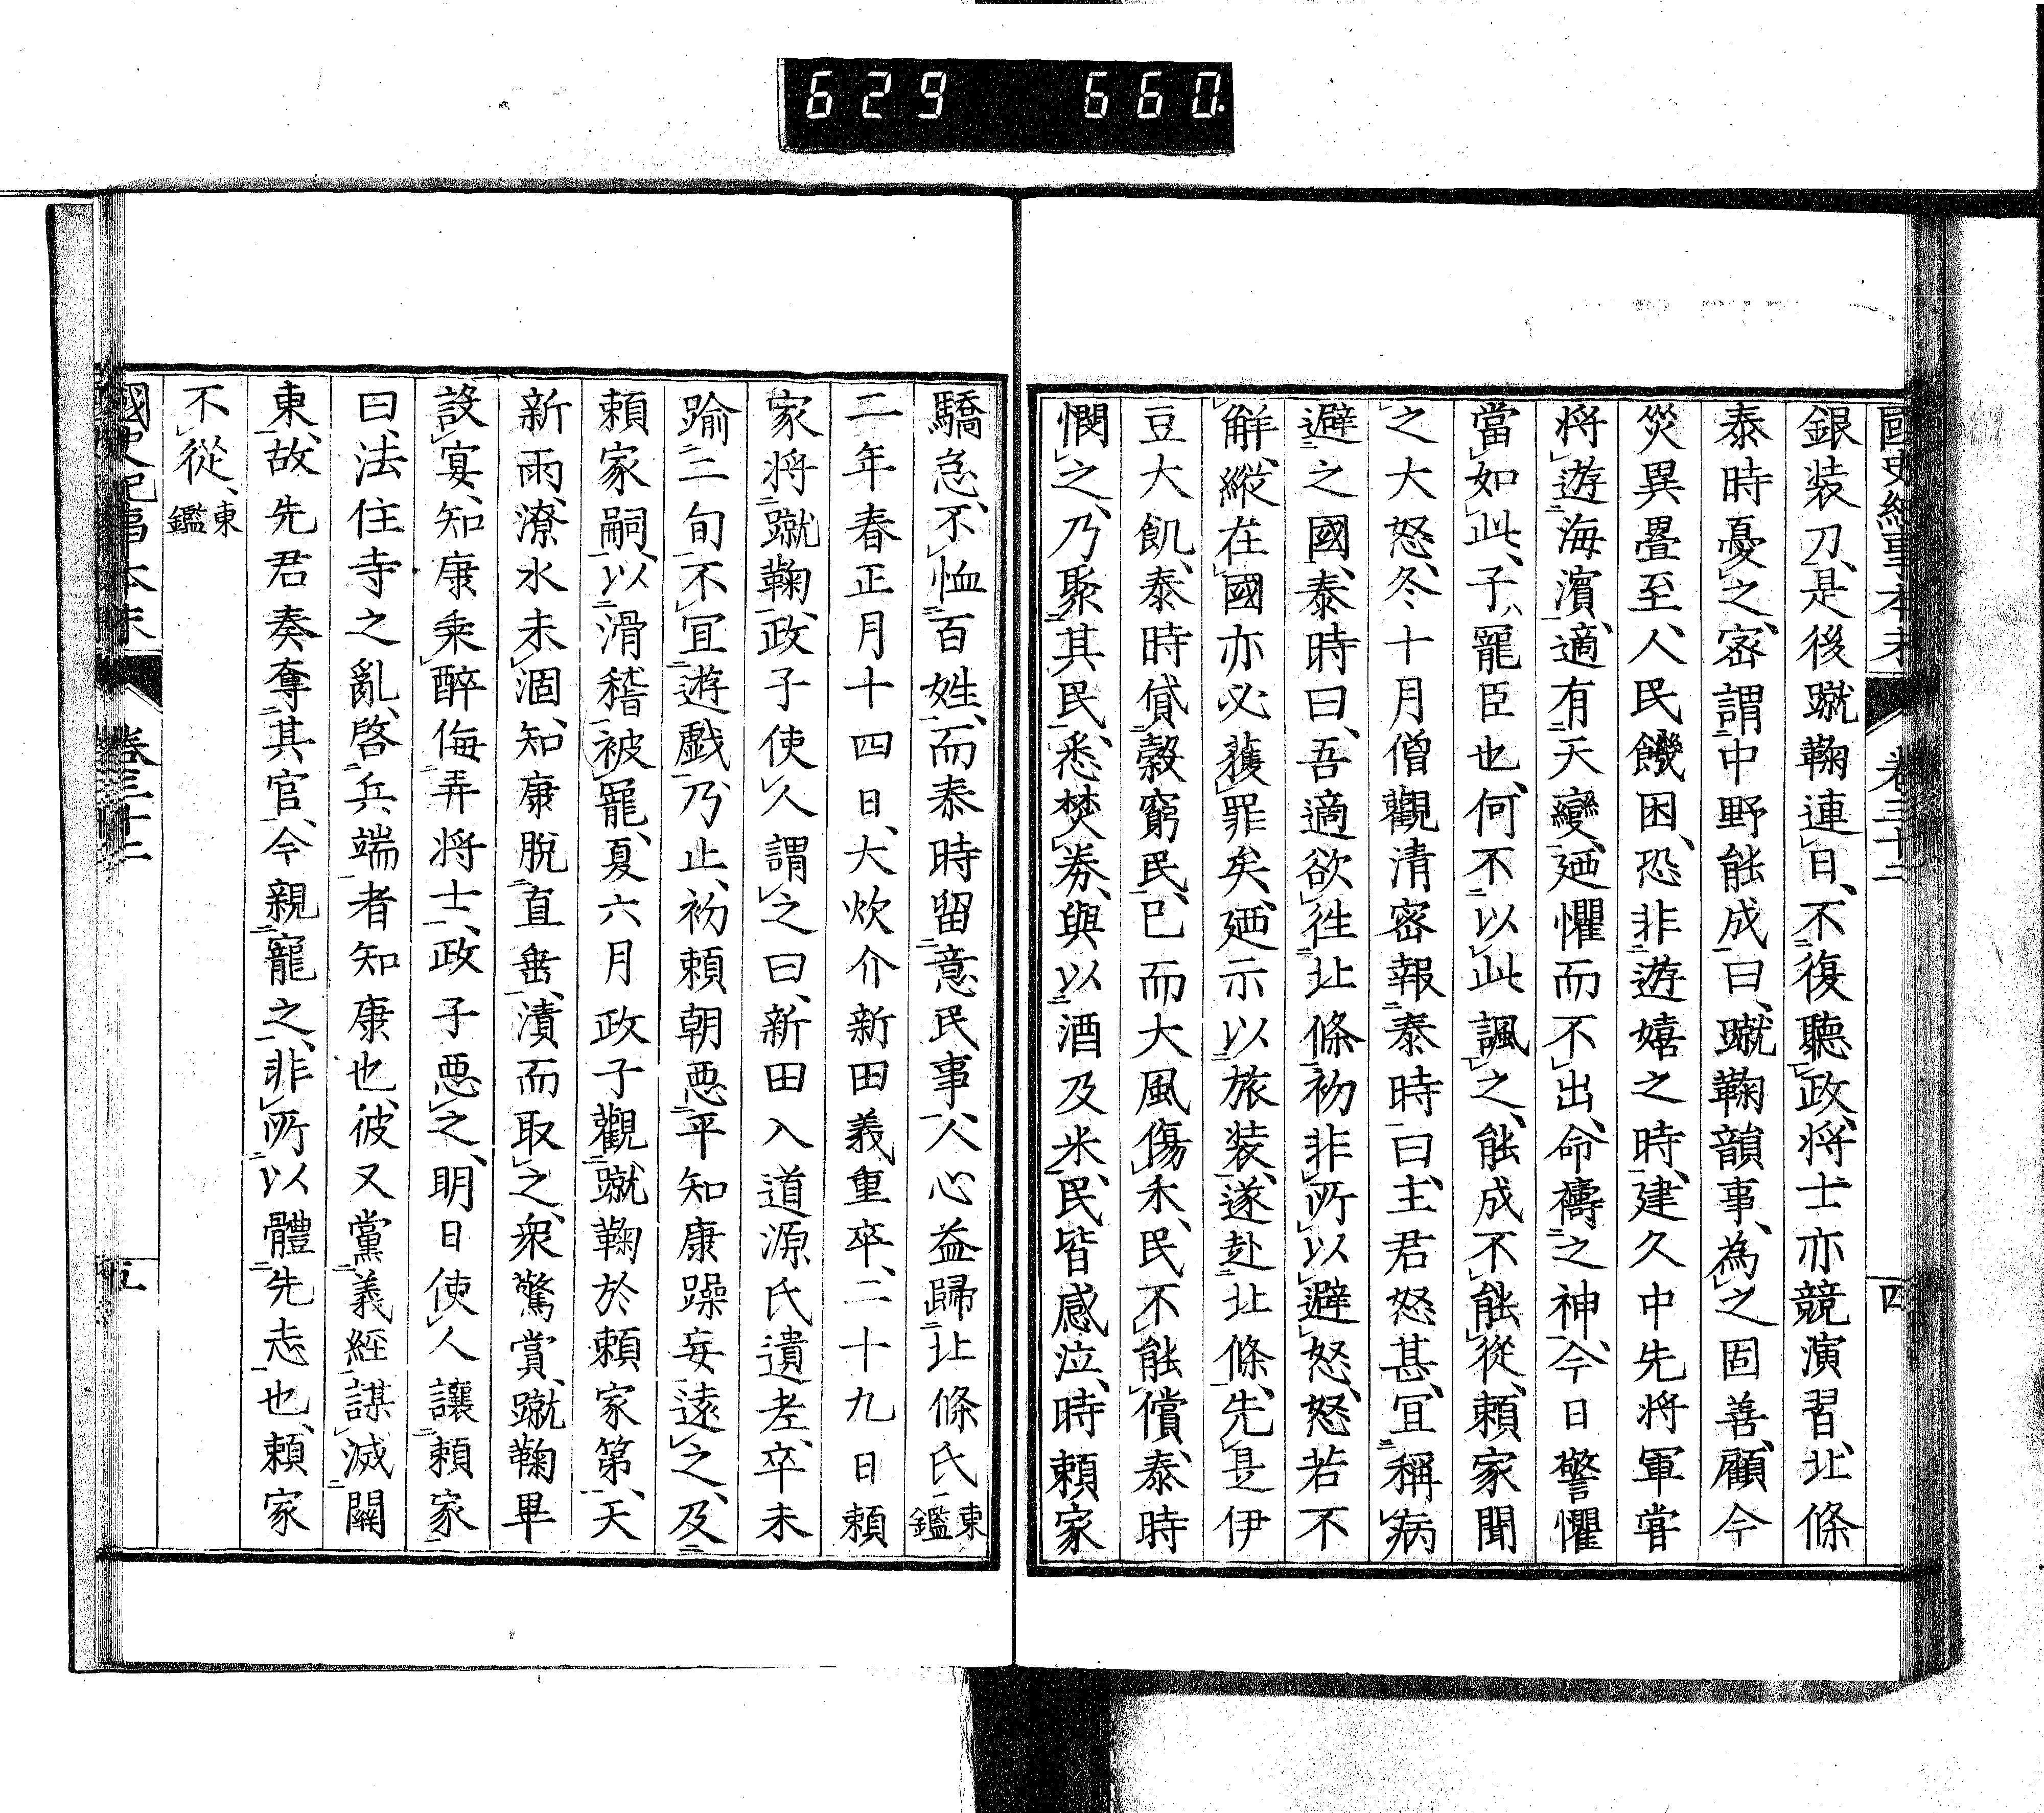 629 660.
國史紀事本末 卷三十二 四
銀装刀、是後蹴鞠連日、不復聽政、将士亦競演習、北條
泰時憂之、密謂中野能成曰、蹴鞠韻事、為之固善、顧今
災異畳至、人民饑困、恐非遊嬉之時、建久中先将軍甞
将遊海濱、適有天變、廼懼而不出、命禱之神、今日警懼
當如此、子寵臣也、何不以此諷之、能成不能從、頼家聞
之大怒、冬十月僧觀清密報泰時曰、主君怒甚、冝稱病
避之國、泰時曰、吾適欲徃北條、初非所以避怒、怒若不
觧、縱在國亦必獲罪矣、廼示以旅装、遂赴北條、先是伊
豆大飢、泰時貸穀窮民、已而大風傷禾、民不能償、泰時
憫之、乃聚其民、悉焚券、與以酒及米、民皆感泣、時頼家
驕怠、不恤百姓、而泰時留意民事、人心益歸北條氏 東鑑
二年春正月十四日、大炊介新田義重卒、二十九日頼
家将蹴鞠、政子使人謂之曰、新田入道源氏遺老、卒未
踰二旬、不冝遊戯、乃止、初頼朝悪平知康躁妄、遠之、及
頼家嗣、以滑稽被寵、夏六月政子觀蹴鞠於頼家第、天
新雨、潦水未涸、知康脫直垂、漬而取之、衆驚賞、蹴鞠畢
設宴、知康乘醉侮弄将士、政子悪之、明日使人讓頼家
曰、法住寺之亂、啓兵端者知康也、彼又黨義經、謀滅關
東、故先君奏奪其官、今親寵之、非所以體先志也、頼家
不從、東鑑
國史紀事本末 卷三十二 五